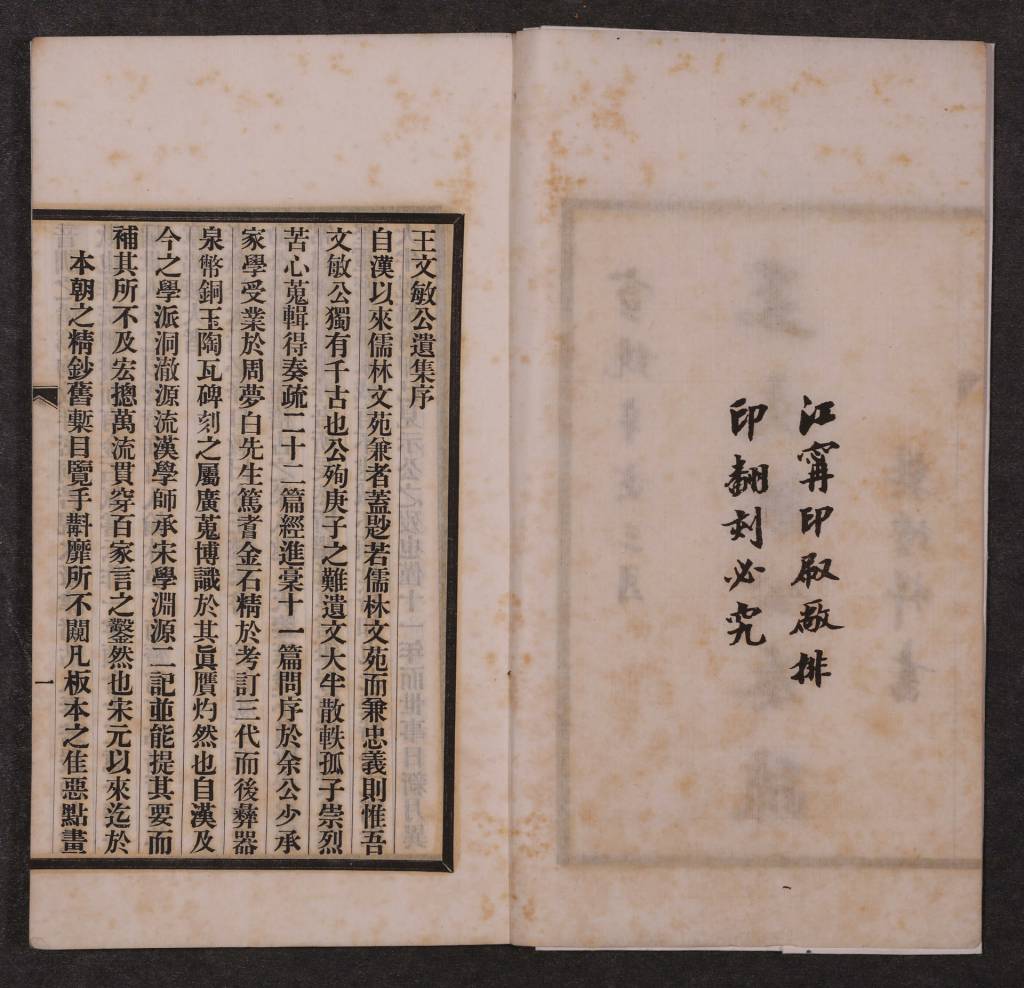 江甯印刷廠排
印翻刻必究
王文敏公遺集序
自漢以來儒林文苑兼者蓋尟若儒林文苑而兼忠義則惟吾
文敏公獨有千古也公殉庚子之難遺文大半散軼孤子崇烈
苦心蒐輯得奏疏二十二篇經進稾十一篇問序於余公少承
家學受業於周夢白先生篤耆金石精於考訂三代而後彝器
泉幣銅玉陶瓦碑刻之屬廣蒐博識於其眞贋灼然也自漢及
今之學派洞澈源流漢學師承宋學淵源二記並能提其要而
補其所不及宏摠萬流貫穿百家言之鑿然也宋元以來迄於
本朝之精鈔舊槧目覽手斠靡所不闚凡板本之隹惡點畫
一